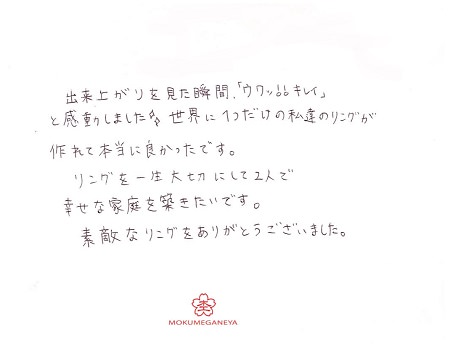 出来上がりを見た瞬間、「ウワッ!!キレイ」
と感動しました♪♪ 世界に1つだけの私達のリングが
作れて本当に良かったです。
リングを一生大切にして2人で
幸せな家庭を築きたいです。
素敵なリングをありがとうございました。
MOKUMEGANEYA